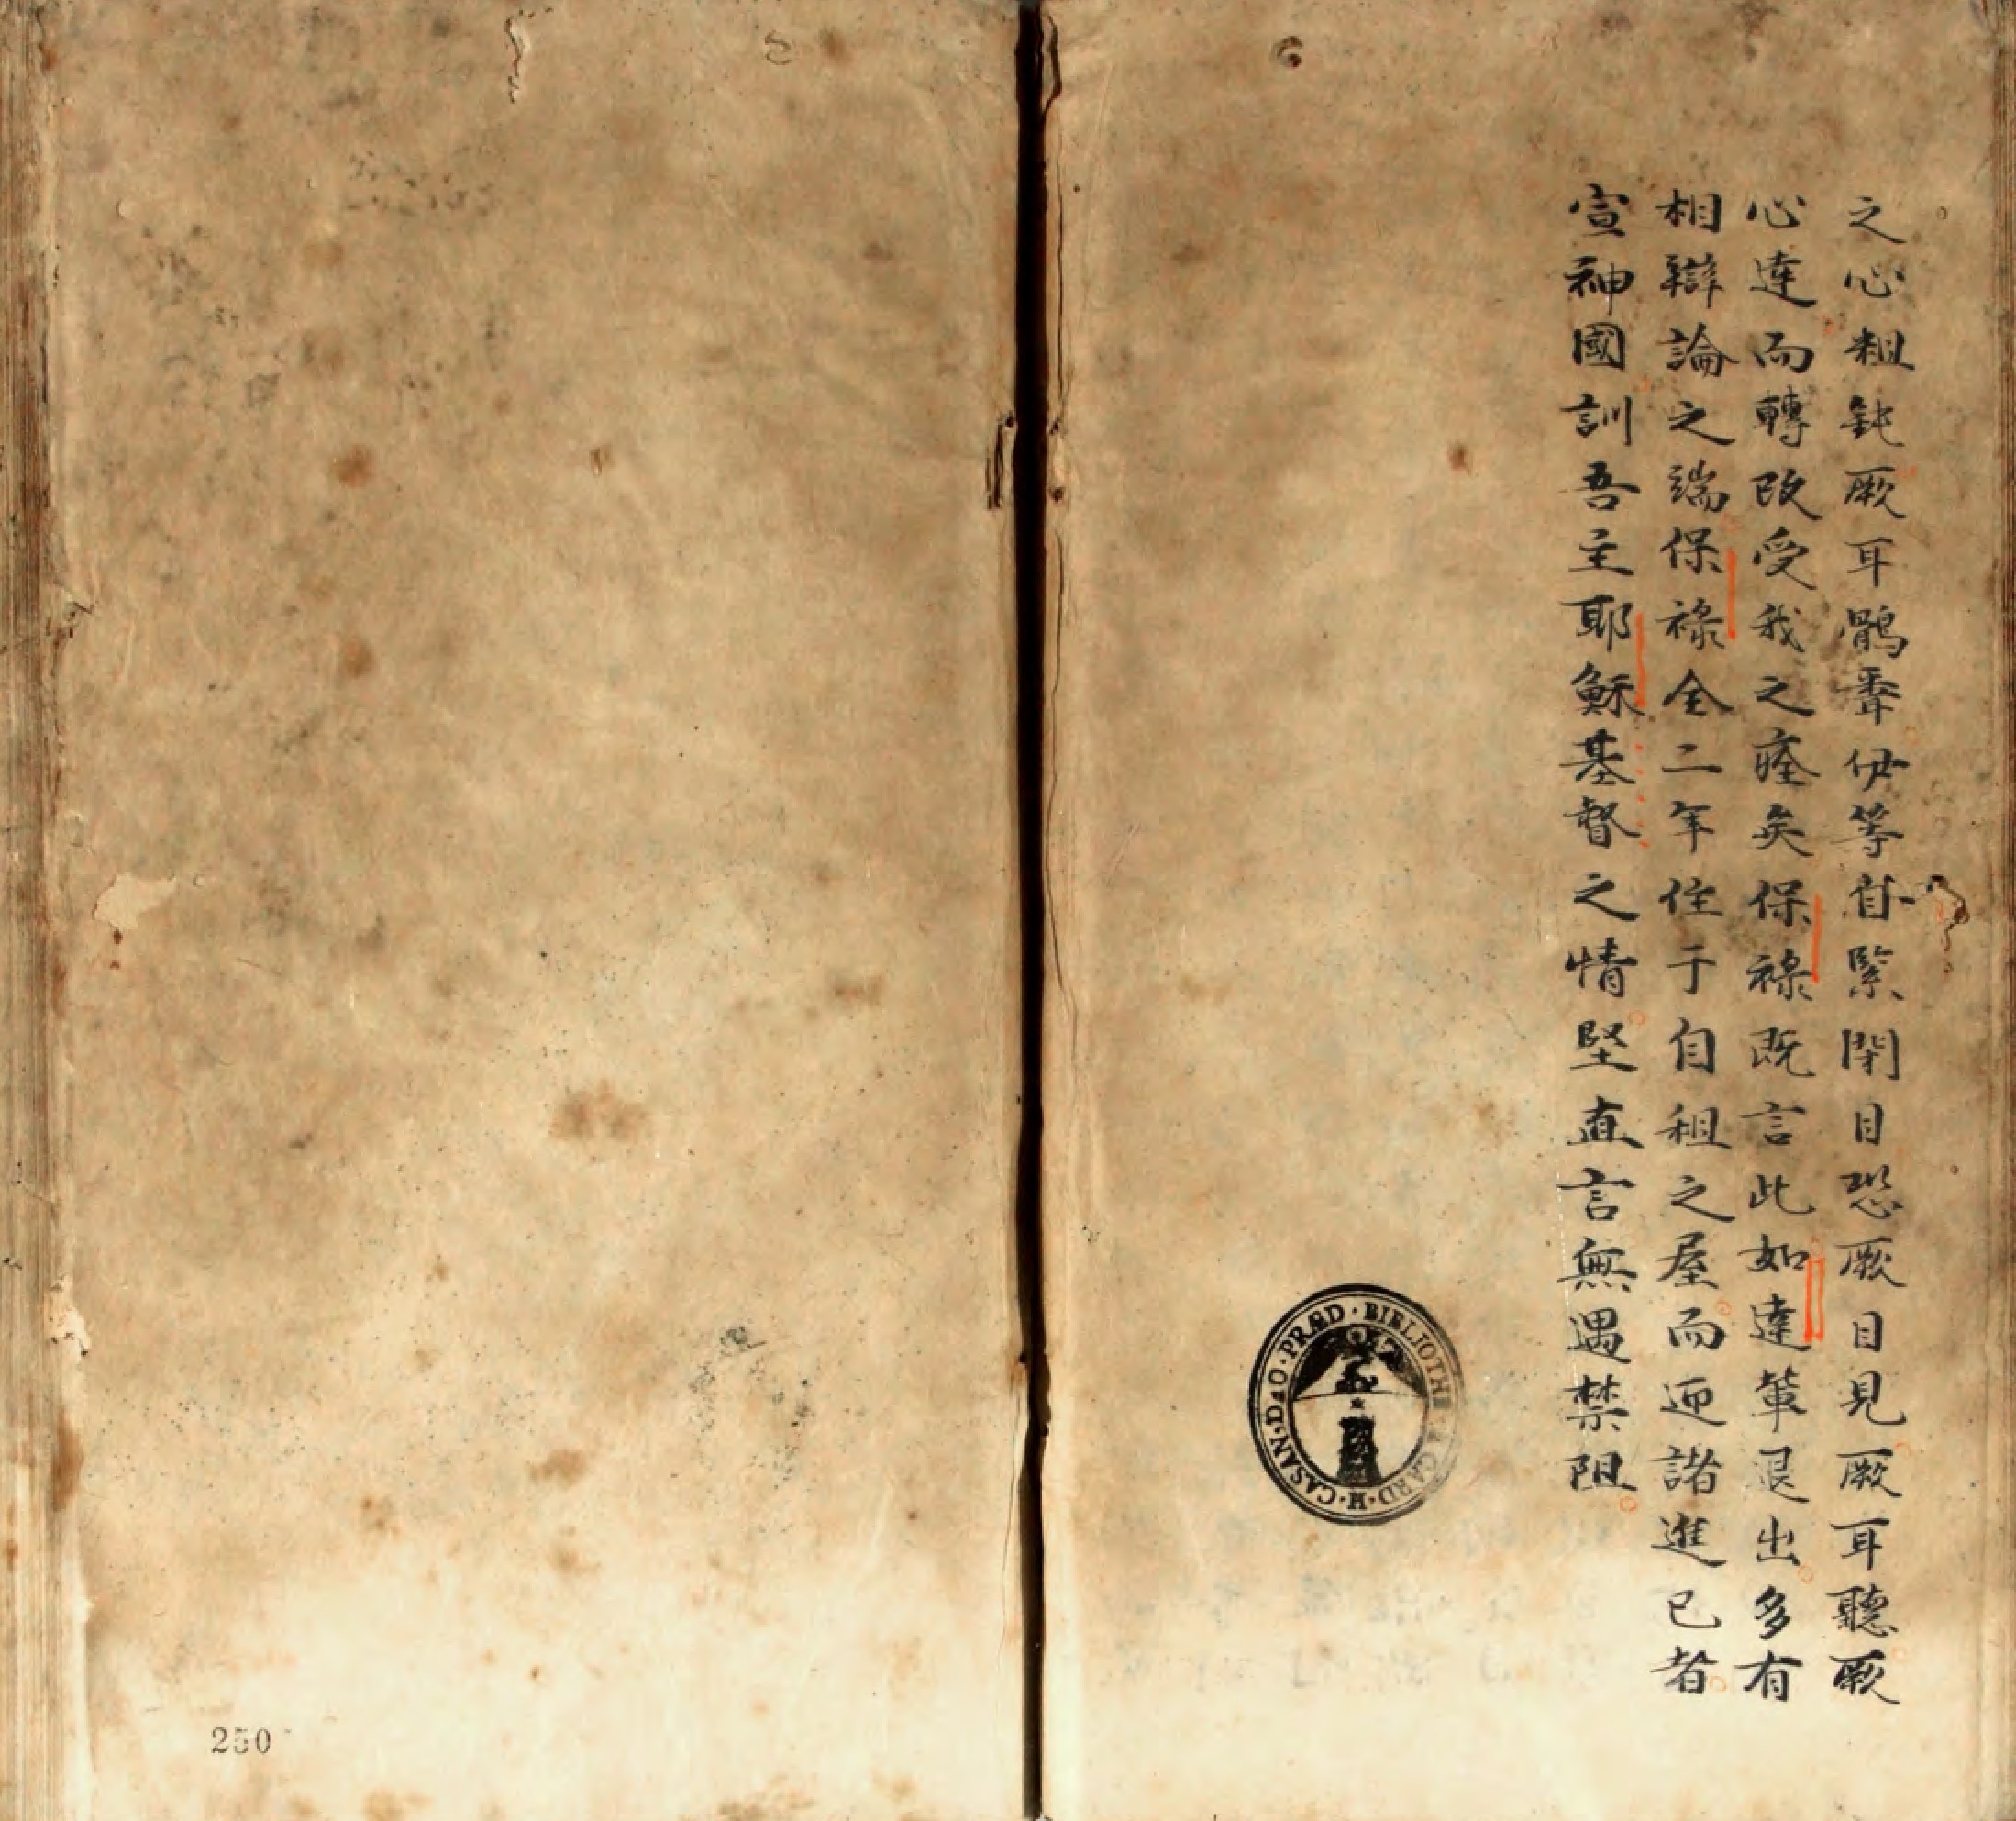 之心粗鈍厥耳鶻聾伊等自緊閉目恐厥目見厥耳聽厥
心達而轉改受我之痊矣保祿既言此如達輩退出多有
相辯論之端保祿全二年住于自租之屋而迎諸進己者
宣神國訓吾主耶穌基督之情堅直言無遇禁阻
BIBLIOTHE CARD·H·CASAN·D·O·PRÆD·
250